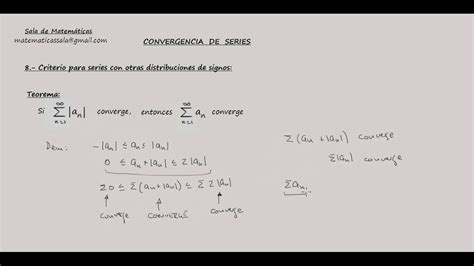 Sala de Matemáticas
matematicassala@gmail.com
CONVERGENCIA DE SERIES
8.- Criterio para series con otras distribuciones de signos:
Teorema:
Si ∑_{n=1}^{∞} |a_n| converge, entonces ∑_{n=1}^{∞} a_n converge
Dem: -|a_n| ≤ a_n ≤ |a_n|
0 ≤ a_n + |a_n| ≤ 2|a_n|
∑0 ≤ ∑(a_n + |a_n|) ≤ ∑ 2|a_n|
↑ ↑ ↑
converge CONVERGE converge
∑(a_n + |a_n|) converge
∑|a_n| converge
∑a_n